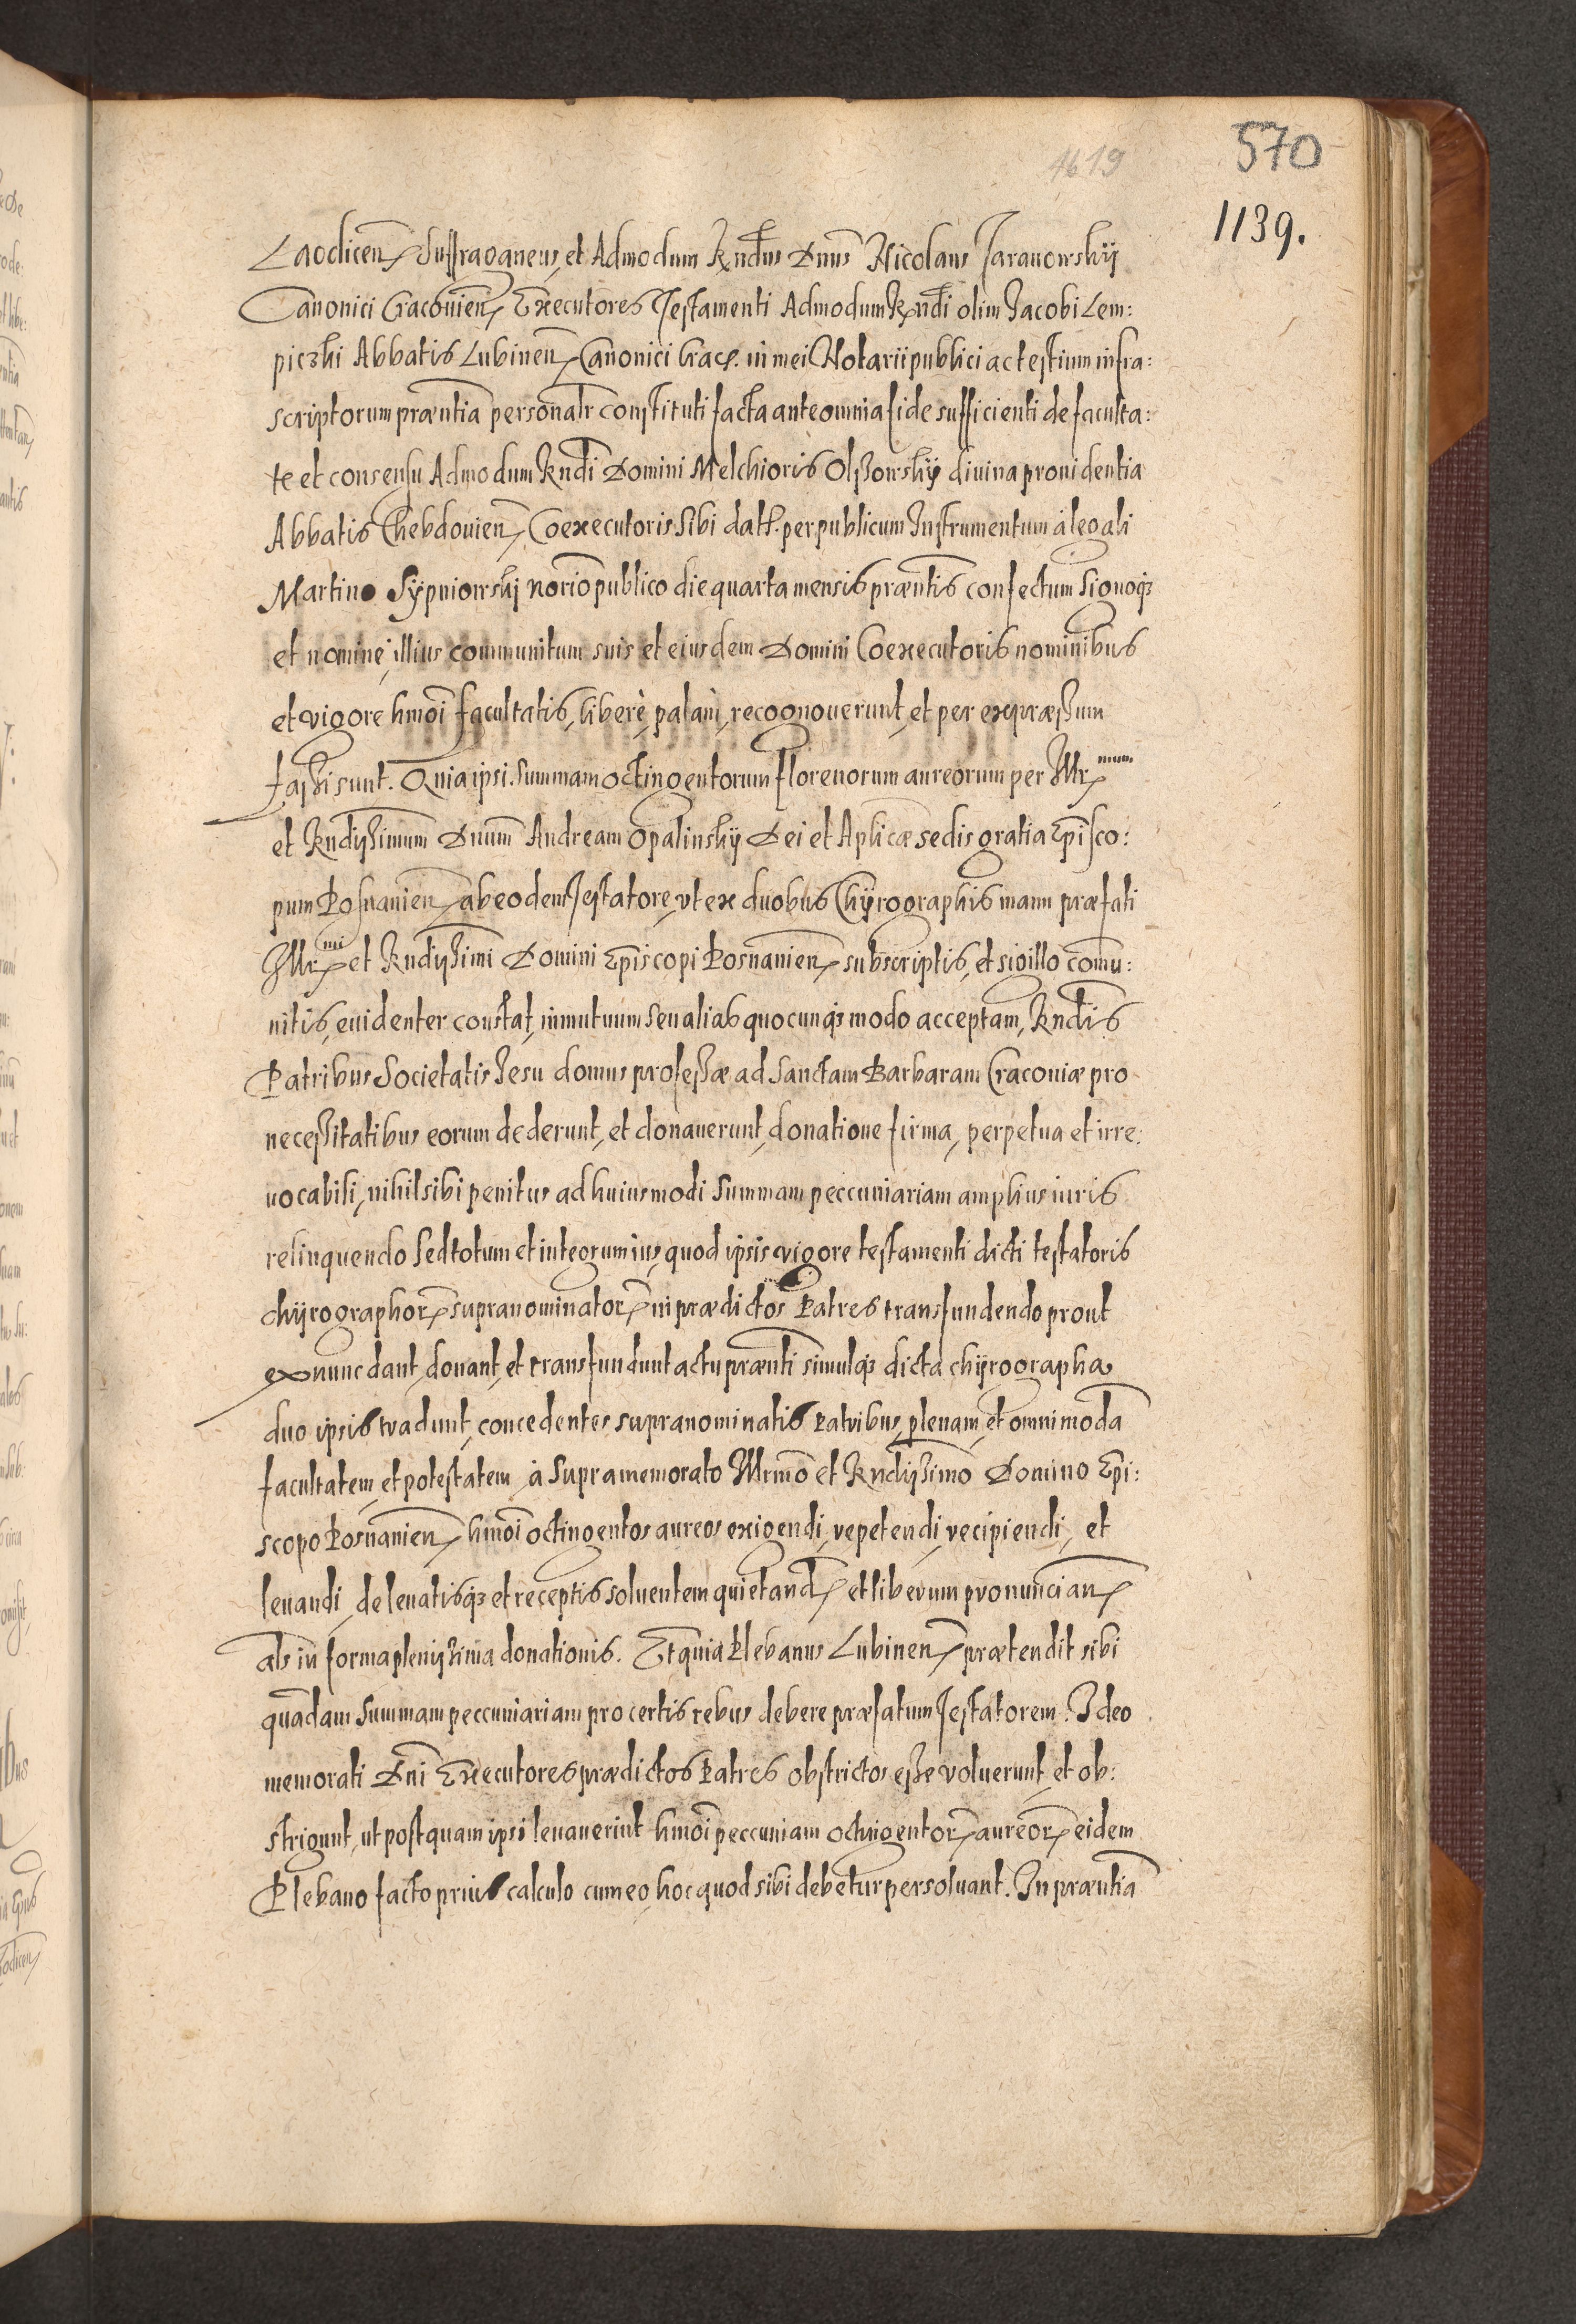 1619
570
1139.
Laodicen Suffraganeus, et Admodum Rndus Dnus Nicolaus Jaranowskÿ
Canonici Cracouien Executores Testamenti Admodum Rndi olim Jacobi Lem:
piczki Abbatis Lubinen Canonici Crac. in mei Notarii publici ac testium infra:
scriptorum præntia personalr constituti facta ante omnia fide sufficienti de faculta:
te et consensu Admodum Rndi Domini Melchioris Olßowskÿ diuina prouidentia
Abbatis Chebdouien Coexecutoris sibi datt. per publicum Instrumentum à legali
Martino Sÿpniowski norio publico die quarta mensis præntis confectum signoq3
et nomine illius communitum suis et eiusdem Domini Coexecutoris nominibus
et vigore hmoi facultatis, liberè, palàm, recognouerunt, et per expræßum
faßi sunt. Quia ipsi summam octingentorum florenorum aureorum per Illr mum
et Rndißimum Dnum Andream Opalinskÿ Dei et Aplicæ sedis gratia Episco:
pum Posnanien ab eodem Testatore, vt ex duobus Chÿrographis manu præfati
Illr mi et Rndißimi Domini Episcopi Posnanien subscriptis, et sigillo comu:
nitis, euidenter constat, in mutuum seu alias quocunq3 modo acceptam, Rndis
Patribus Societatis Jesu domus profeßæ ad Sanctam Barbaram Cracouiæ pro
neceßitatibus eorum dederunt, et donauerunt, donatione firma, perpetua et irre:
uocabili, nihil sibi penitus ad huiusmodi summam peccuniariam amplius iuris
relinquendo sed totum et integrum ius, quod ipsis vigore testamenti dicti testatoris
chÿrographor supranominator in prædictos Patres transfundendo prout
ex nunc dant, donant, et transfundunt actu prænti simulq3 dicta chÿrographa
duo ipsis tradunt, concedentes supranominatis Patribus, plenam, et omnimoda
facultatem, et potestatem, à supramemorato Illrmo et Rndißimo Domino Epi:
scopo Posnanien hmoi octingentos aureos exigendi, repetendi, recipiendi, et
leuandi, de leuatisq3 et receptis soluentem quietand et liberum pronuncian
als in forma plenißima donationis. Et quia Plebanus Lubinen prætendit sibi
quadam summam peccuniariam pro certis rebus debere præfatum Testatorem. Ideo
memorati Dni Executores prædictos Patres obstrictos eße voluerunt, et ob:
strigunt, ut postquam ipsi leuauerint hmoi peccuniam octingentor aureor eidem
Plebano facto prius calculo cum eo, hoc quod sibi debetur persoluant. In præntia